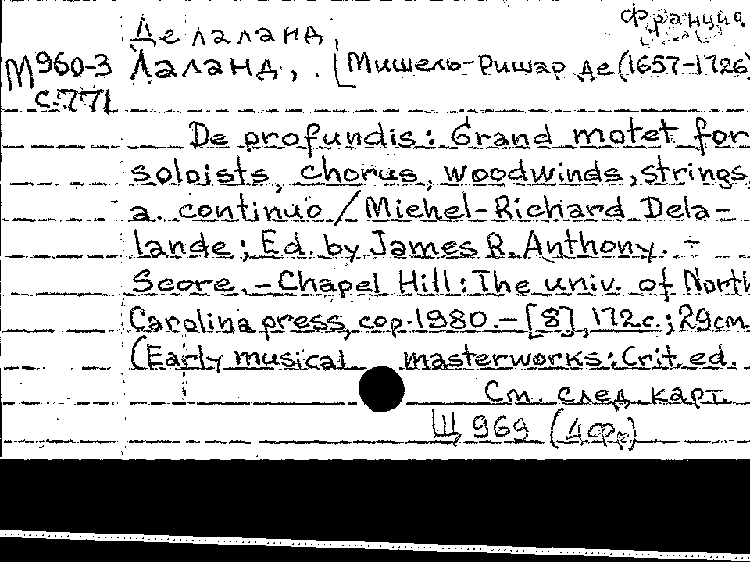 Франция
Делаланд,
М960-3 Лаланд, [Мишель-Ришар де (1657-1726)
с.771
De profundis: Grand motet for
soloists, chorus, woodwinds, strings,
a. continuo / Michel-Richard Dela-
lande; Ed. by James R. Anthony. -
Score. - Chapel Hill: The univ. of North
Carolina press, cop. 1980. - [8], 172 с.; 29cm.
(Early musical masterworks: Crit. ed.
См. след. карт.
Щ 969